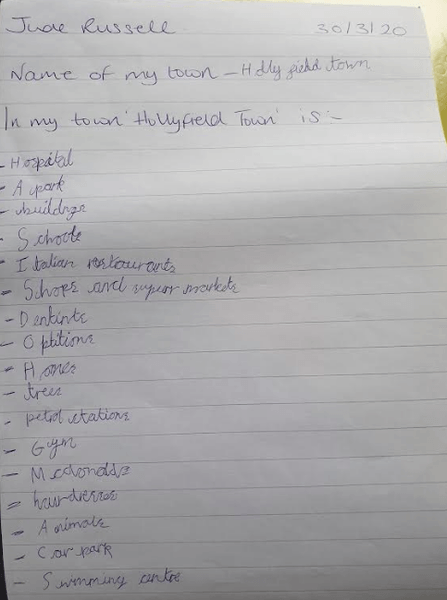 Jude Russell 30/3/20
Name of my town - Hollyfield town
In my town 'Hollyfield Town' is :-
- Hospital
- A park
- buildings
- Schools
- Italian restaurants
- Schops and super markets
- Dentists
- Optitions
- Homes
- trees
- petrol stations
- Gym
- Mcdonalds
- hairdresser
- Animals
- Car park
- Swimming centre